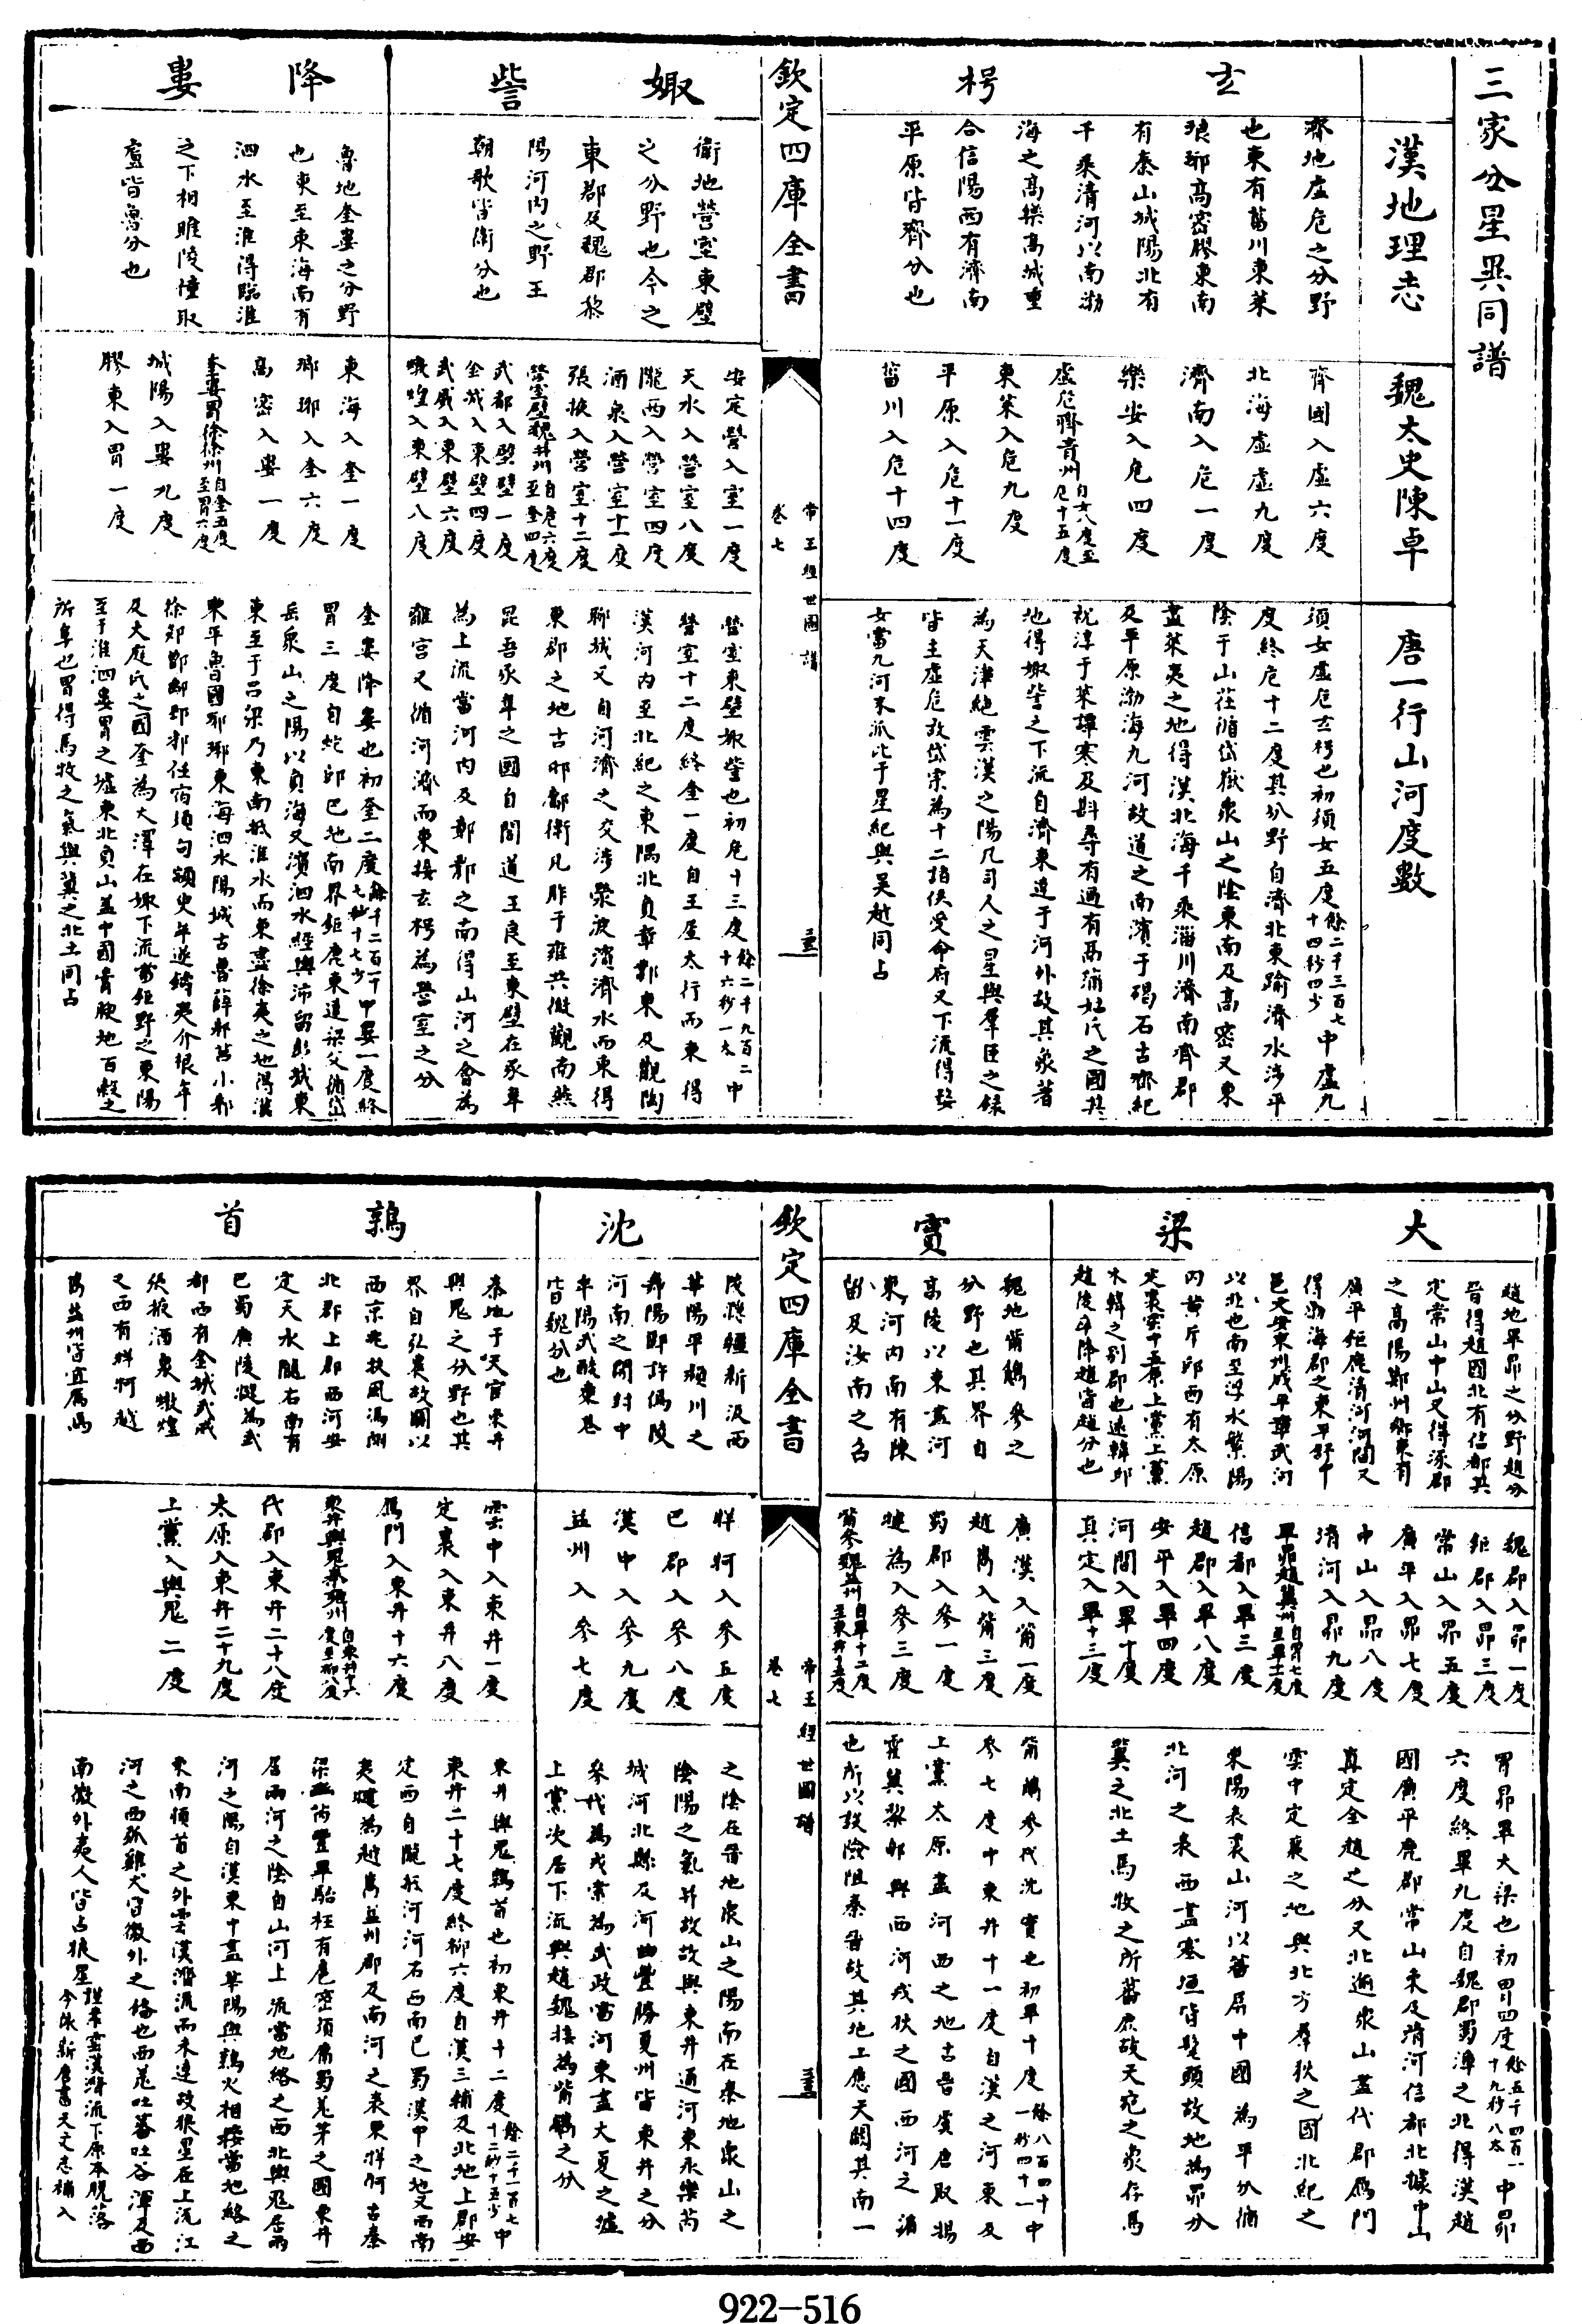 三家分星異同譜
漢地理志
魏太史陳卓
唐一行山河度數
玄枵
齊地虛危之分野
也東有菑川東萊
琅琊高密膠東南
有泰山城陽北有
千乘清河以南渤
海之高樂高城重
合信陽西有濟南
平原皆齊分也
齊國入虛六度
北海虛虛九度
濟南入危一度
樂安入危四度
虛危齊青州自女八度至危十五度
東萊入危九度
平原入危十一度
菑川入危十四度
須女虛危玄枵也初須女五度餘二千三百七十四秒四少中虛九
度終危十二度其分野自濟北東踰濟水涉平
陰于山茌循岱嶽衆山之陰東南及高密又東
盡萊夷之地得漢北海千乘淄川濟南齊郡
及平原渤海九河故道之南濱于碣石古齊紀
祝淳于萊譚寒及斟尋有過有鬲蒲姑氏之國其
地得娵訾之下流自濟東達于河外故其象著
為天津絕雲漢之陽凡司人之星與羣臣之錄
皆主虛危故岱宗為十二諸侯受命府又下流得婺
女當九河末派比于星紀與吳越同占
欽定四庫全書
帝王經世圖譜
卷七
娵訾
衛地營室東壁
之分野也今之
東郡及魏郡黎
陽河内之野王
朝歌皆衛分也
安定營入室一度
天水入營室八度
隴西入營室四度
酒泉入營室十一度
張掖入營室十二度
營室壁魏幷州自危六度至奎四度
武都入壁壁一度
金城入東壁四度
武威入東壁六度
燉煌入東壁八度
營室東壁娵訾也初危十三度餘二千九百二十六秒一太中
營室十二度終奎一度自王屋太行而東得
漢河内至北紀之東隅北負章鄴東及觀陶
聊城又自河濟之交涉滎波濱濟水而東得
東郡之地古邶鄘衛凡胙于雍共微觀南燕
昆吾豕韋之國自閣道王良至東壁在豕韋
為上流當河内及鄴郡之南得山河之會為
離宮又循河濟而東接玄枵為營室之分
降婁
魯地奎婁之分野
也東至東海南有
泗水至淮得臨淮
之下相睢陵憧取
盧皆魯分也
東海入奎一度
琅琊入奎六度
高密入婁一度
奎婁胃徐徐州自奎五度至胃六度
城陽入婁九度
膠東入胃一度
奎婁降婁也初奎二度餘千二百一十七秒十七少中婁一度終
胃三度自蛇邱巴地南界鉅鹿東達梁父循岱
岳衆山之陽以負海又濱泗水經與沛留彭城東
東至于呂梁乃東南抵淮水而東盡徐夷之地得漢
東平魯國琊瑯東海泗水陽城古魯薛邾莒小邾
徐郯鄫鄅邳邿任宿須句顓臾牟遂鑄夷介根牟
及大庭氏之國奎為大澤在娵下流當鉅野之東陽
至于淮泗婁胃之墟東北負山蓋中國膏腴地百穀之
所阜也胃得馬牧之氣與冀之北土同占
大梁
趙地畢昴之分野趙分
晉得趙國北有信都其
定常山中山又得涿郡
之高陽鄚州鄉東有
廣平鉅鹿清河河間又
得渤海郡之東平舒中
邑文安東州成平章武河
以北也南至浮水繁陽
内黃斥邱西有太原
定襄雲中五原上黨上黨
本韓之别郡也遠韓近
趙後卒降趙皆趙分也
魏郡入昴一度
鉅郡入昴三度
常山入昴五度
廣平入昴七度
中山入昴八度
清河入昴九度
畢昴趙冀州自胃七度至畢十一度
信都入畢三度
趙郡入畢八度
安平入畢四度
河間入畢十度
真定入畢十三度
胃昴畢大梁也初胃四度餘五千四百一十九秒八太中昴
六度終畢九度自魏郡蜀漳之北得漢趙
國廣平鹿郡常山東及清河信都北據中山
真定全趙之分又北逾衆山蓋代郡鴈門
雲中定襄之地與北方羣狄之國北紀之
東陽表裏山河以蕃屏中國為平分循
北河之表西盡塞垣皆髦頭故地為昴分
冀之北土馬牧之所蕃庶故天苑之象存焉
實沈
魏地觜觿參之
分野也其界自
高陵以東盡河
東河内南有陳
留及汝南之召
廣漢入觜一度
越巂入觜三度
蜀郡入參一度
犍為入參三度
觜參魏益州自畢十二度至東井十五度
觜觿參伐沈實也初畢十度餘八百四十一秒四十一中
參七度中東井十一度自漢之河東及
上黨太原盡河西之地古晉虞唐耿揚
霍冀黎郇與西河戎狄之國西河之濱
也所以設險阻秦晉故其地上應天闕其南一
欽定四庫全書
帝王經世圖譜
卷七
陵濦彊新汲西
華陽平潁川之
舞陽郾許傿陵
河南之開封中
牟陽武酸棗卷
皆魏分也
牂牁入參五度
巴郡入參八度
漢中入參九度
益州入參七度
之陰在晉地衆山之陽南在秦地衆山之
陰陽之氣并故故與東井通河東永樂芮
城河北縣及河曲豐勝夏州皆東井之分
參伐為戎索為武政當河東盡大夏之墟
上黨次居下流與趙魏接為觜觿之分
鶉首
秦地于天官東井
與鬼之分野也其
界自弘農故關以
西京兆扶風馮翊
北郡上郡西河安
定天水隴右南有
巴蜀廣陵犍為武
都西有金城武威
張掖酒泉燉煌
又西有牂牁越
巂益州皆宜屬焉
雲中入東井一度
定襄入東井八度
鴈門入東井十六度
東井與鬼秦雍州自東井十六度至柳八度
代郡入東井二十八度
太原入東井二十九度
上黨入與鬼二度
東井與鬼鶉首也初東井十二度餘二千一百七十二秒十五少中
東井二十七度終柳六度自漢三輔及北地上郡安
定西自隴坻河河石西南巴蜀漢中之地又西南
夷犍為越巂益州郡及南河之表東牂牁古秦
梁豳芮豐畢駘枉有扈密須庸蜀羌茅之國東井
居兩河之陰自山河上流當地絡之西北與鬼居兩
河之陽自漢東中盡華陽與鶉火相接當地絡之
東南傾首之外雲漢潛流而未達故狼星在上流江
河之西弧雞犬皆徼外之絡也西羌吐蕃吐谷渾及西
南徼外夷人皆占狼星謹案雲漢潛流下原本脫落今依新唐書天文志補入
922-516